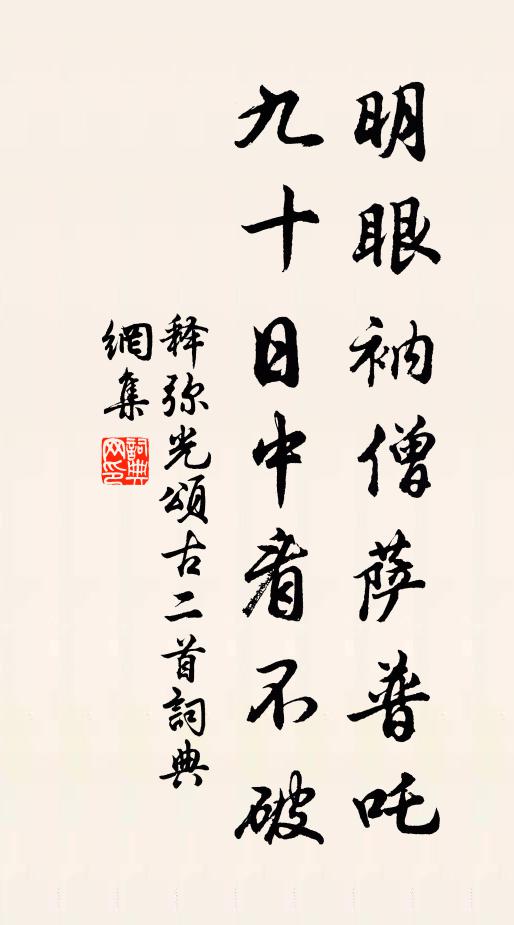 明眼衲僧薩普吒
九十日中看不破
释弥光頌古二首詞典
網集
詞典網印